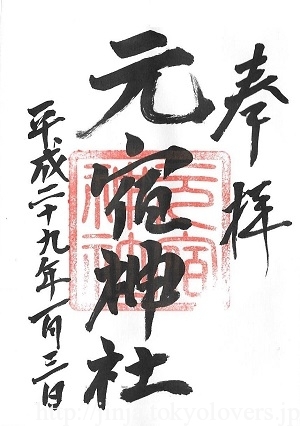 奉拝
元宿神社
元宿神社
平成二十九年一月三日
http://jinja.tokyolovers.jp